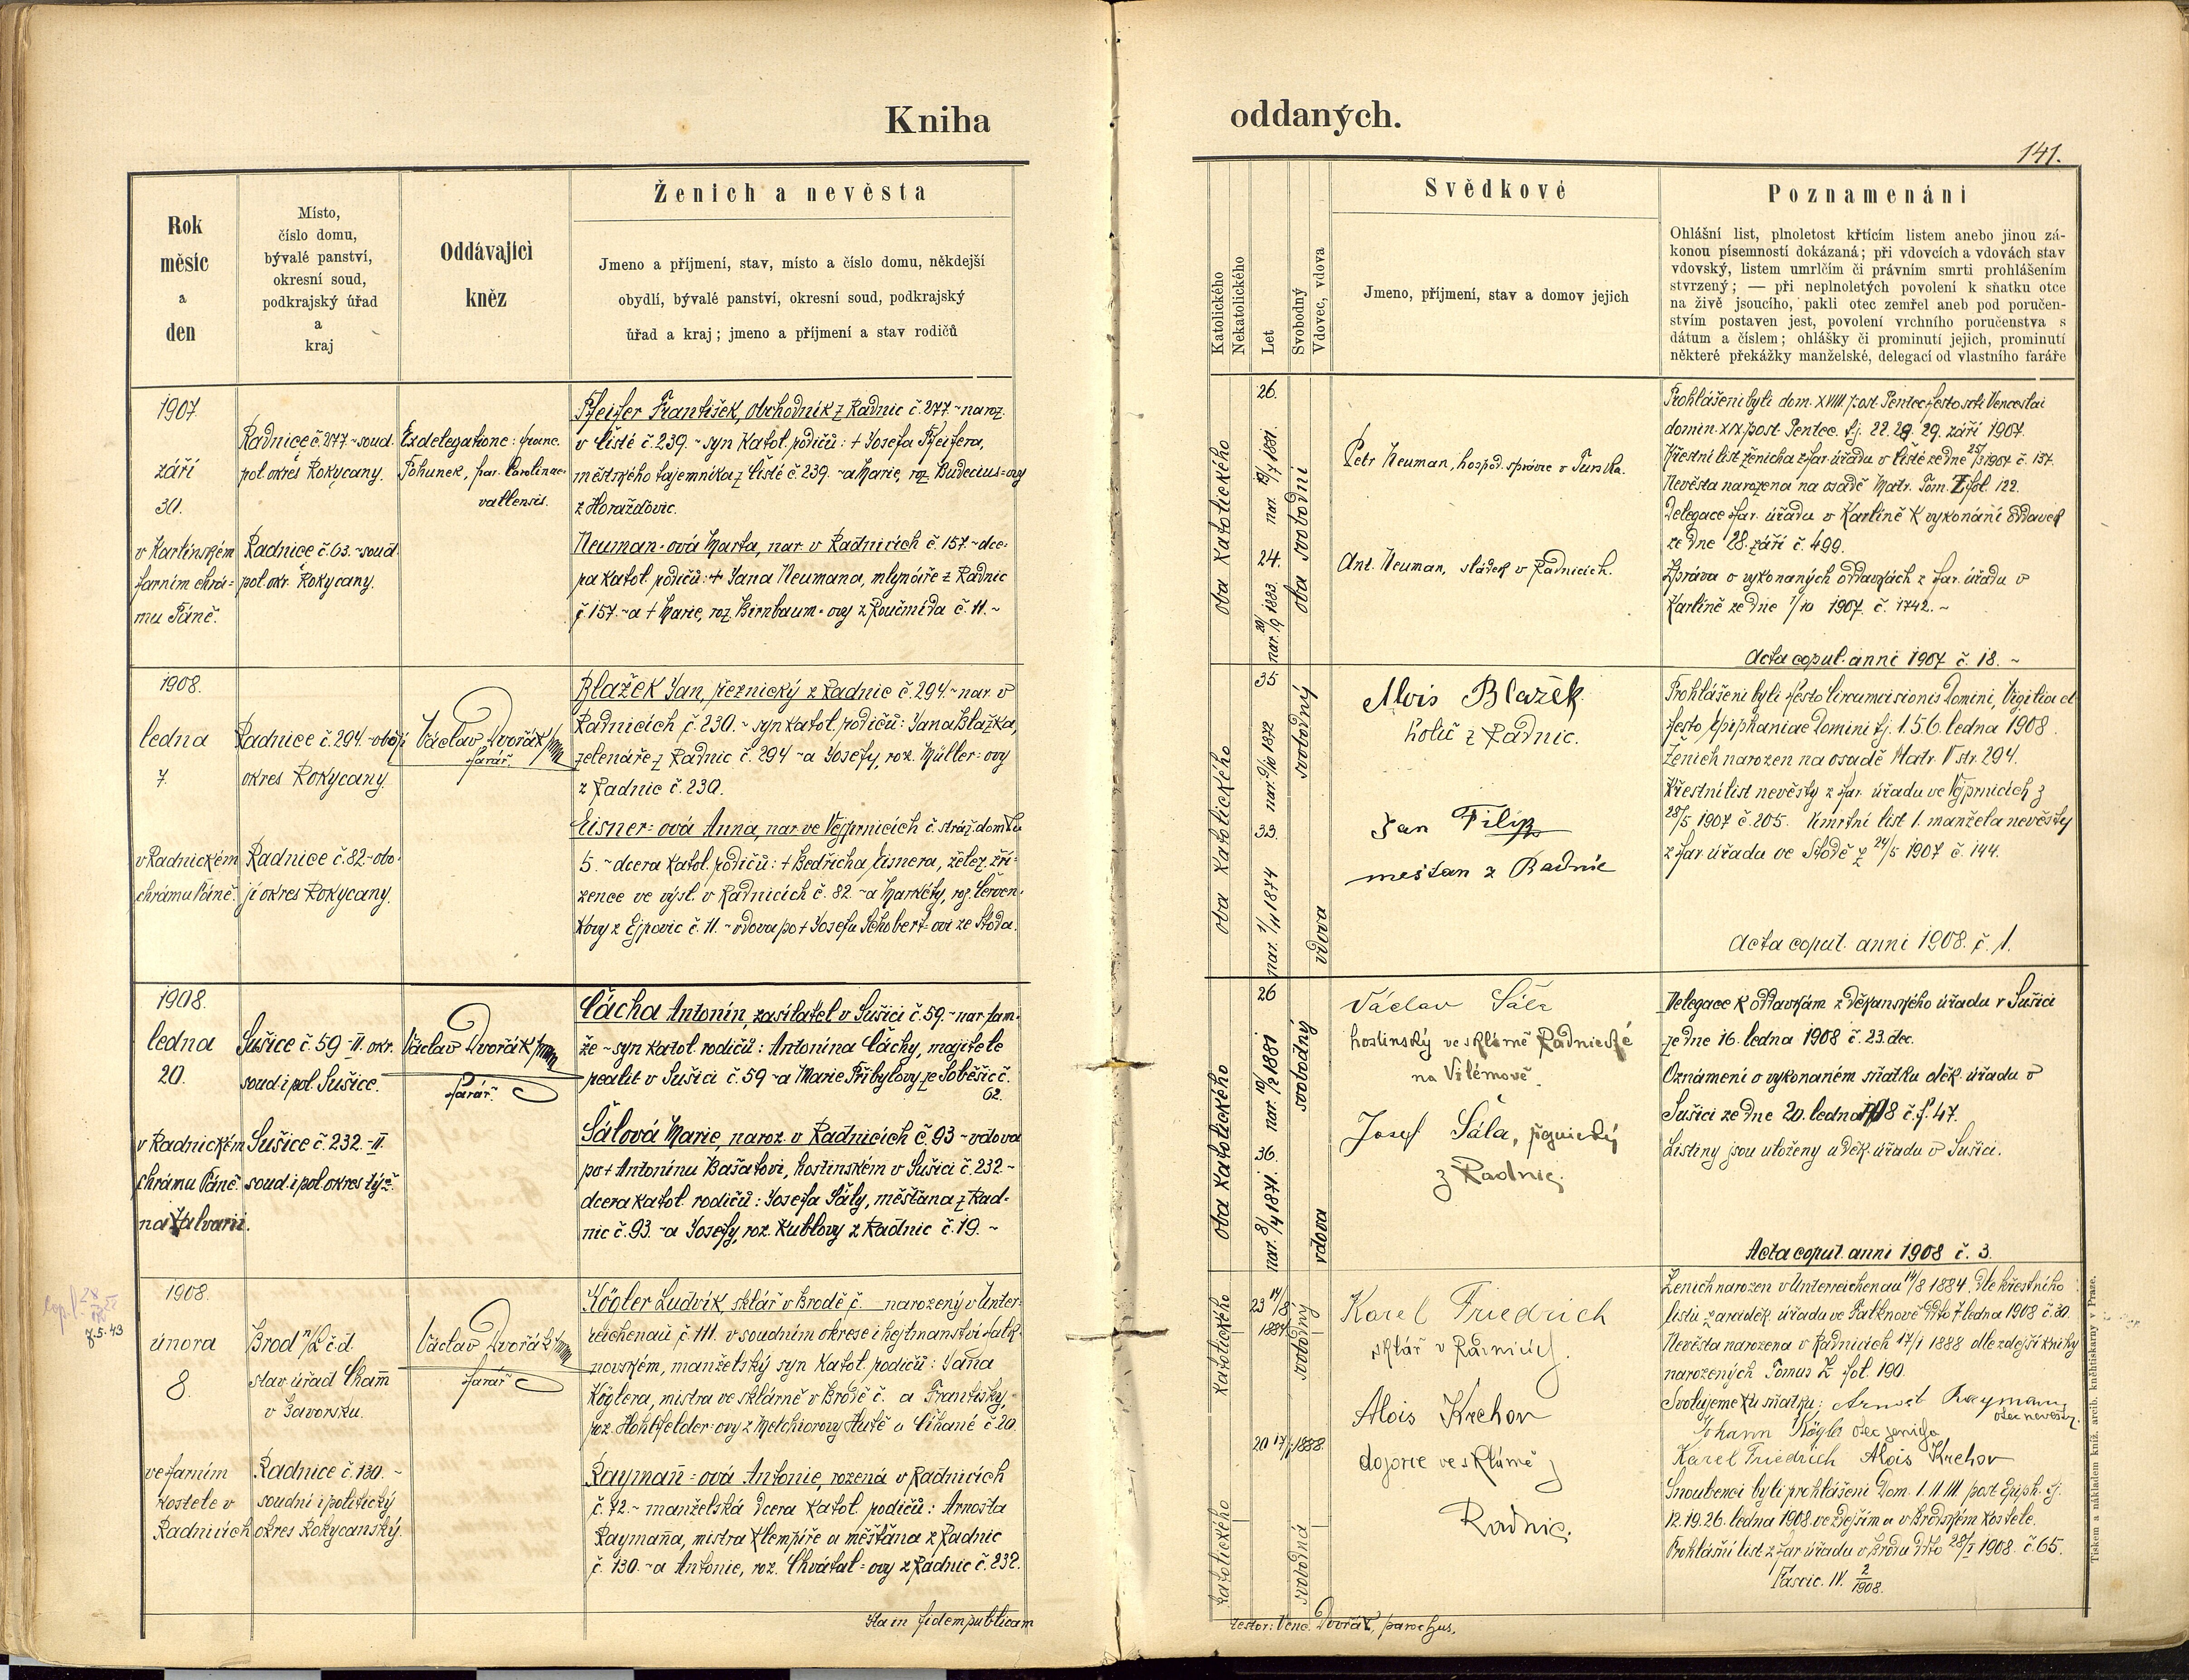 Kniha
oddaných.
141.
Rok
měsíc
a
den
Místo,
číslo domu,
bývalé panství,
okresní soud,
podkrajský úřad
a
kraj
Oddávající
kněz
Ženich a nevěsta
Jmeno a příjmení, stav, místo a číslo domu, někdejší
obydlí, bývalé panství, okresní soud, podkrajský
úřad a kraj; jmeno a příjmení a stav rodičů
Katolického
Nekatolického
Let
Svobodný
Vdovec, vdova
Svědkové
Jmeno, příjmení, stav a domov jejich
Poznamenáni
Ohlášní list, plnoletost křtícím listem anebo jinou zá-
konou písemností dokázaná; při vdovcích a vdovách stav
vdovský, listem umrlčím či právním smrti prohlášením
stvrzený; — při neplnoletých povolení k sňatku otce
na živě jsoucího, pakli otec zemřel aneb pod poručen-
stvím postaven jest, povolení vrchního poručenstva s
dátum a číslem; ohlášky či prominutí jejich, prominutí
některé překážky manželské, delegací od vlastního faráře
1907
září
30.
v Karlínském
farním chrá-
mu Páně.
Radnice č. 277 ~ soud.
pol. okres Rokycany.
Radnice č. 63. ~ soud.
pol. okr. Rokycany.
Ex delegatione: franc.
Pohunek, par. Carolinae-
vallensis.
Pfeifer František, obchodník z Radnic č. 277. ~ naroz.
v Čisté č. 239. ~ syn katol. rodičů: + Josefa Pfeifera,
městského tajemníka z Čisté č. 239. ~ a Marie, roz. Budecius=ovy
z Horažďovic.
Neuman=ová Marta, nar. v Radnicích č. 157. ~ dce-
ra katol. rodičů: + Jana Neumana, mlynáře z Radnic
č. 157. ~ a + Marie, roz. Birnbaum=ovy z Roučmída č. 11. ~
oba katolického
26.
nar. 19/7 1881.
24.
nar. 20/9 1883.
oba svobodní
Petr Neuman, hospod. správce v Turska.
Ant. Neuman, sládek v Radnicích.
Prohlášeni byli dom. XVIII post Pentec. festo scti Venceslai
domin. XIX post Pentec. tj. 22. 28. 29. září 1907.
Křestní list ženicha z far. úřadu v Čisté ze dne 25/3 1907 č. 157.
Nevěsta narozena na osadě Matr. Tom. Z fol. 122.
Delegace far. úřadu v Karlíně k vykonání oddavek
ze dne 28. září č. 499.
Zpráva o vykonaných oddavkách z far. úřadu v
Karlíně ze dne 1/10 1907. č. 1742. ~
Acta copul. anni 1907 č. 18. ~
1908.
ledna
7
v Radnickém
chrámu Páně.
Radnice č. 294. ~ obojí
okres Rokycany.
Radnice č. 82 ~ obo-
jí okres Rokycany.
Václav Dvořák
farář.
Blažek Jan, řeznický z Radnic č. 294 ~ nar. v
Radnicích č. 230. ~ syn katol. rodičů: Jana Blažka,
zelenáře z Radnic č. 294 ~ a Josefy, roz. Müller=ovy
z Radnic č. 230.
Eisner=ová Anna, nar. ve Vejprnicích č. stráž. domku
5. ~ dcera katol. rodičů: + Bedřicha Eisnera, želez. zří-
zence ve výsl. v Radnicích č. 82. ~ a Markéty, roz. Červen-
kovy z Ejpovic č. 11. ~ vdova po + Josefu Schobert=ovi ze Stoda.
oba katolického
35
nar. 9/10 1872
33.
nar. 1/11 1874
svobodný
vdova
Alois Blažek
holič z Radnic.
Jan Filip
mešťan z Radnic
Prohlášeni byli festo Circumcisionis Domini, Vigilia et
festo Epiphaniae Domini tj. 1. 5. 6. ledna 1908.
Ženich narozen na osadě Matr. V str. 294.
Křestní list nevěsty z far. úřadu ve Vejprnicích z
28/5 1907 č. 205. Úmrtní list 1. manžela nevěsty
z far. úřadu ve Stodě z 24/5 1907 č. 144.
Acta copul. anni 1908. č. 1.
1908.
ledna
20.
v Radnickém
chrámu Páně
na Kalvarii.
Sušice č. 59 ~ II. okr.
soud. i pol. Sušice.
Sušice č. 232. ~ II.
soud. i pol. okres týž.
Václav Dvořák
farář.
Čácha Antonín, zasílatel v Sušici č. 59. ~ nar. tam-
že ~ syn katol. rodičů: Antonína Čáchy, majitele
realit v Sušici č. 59 ~ a Marie Přibylovy ze Soběšic č.
62.
Šálová Marie, naroz. v Radnicích č. 93 ~ vdova
po + Antonínu Bašatovi, hostinském v Sušici č. 232 ~
dcera katol. rodičů: Josefa Šály, měšťana z Rad-
nic č. 93. ~ a Josefy, roz. Kublovy z Radnic č. 19. ~
oba katolického
26
nar. 10/2 1881
36.
nar. 8/4 1871.
svobodný
vdova
Václav Šála
hostinský ve sklárně Radnické
na Vilémově.
Josef Šála, řeznický
z Radnic.
Delegace k oddavkám z děkanského úřadu v Sušici
ze dne 16. ledna 1908 č. 23. dec.
Oznámení o vykonaném sňatku děk. úřadu v
Sušici ze dne 20. ledna 1908 č. j. 47.
Listiny jsou uloženy u děk. úřadu v Sušici.
Acta copul. anni 1908 č. 3.
7.5.43
1908.
února
8.
ve farním
kostele v
Radnicích
Brod n/L č. d.
stav. úřad Cham
v Bavorsku.
Radnice č. 130. ~
soudní i politický
okres Rokycanský.
Václav Dvořák
farář
Kögler Ludvík, sklář v Brodě č. narozený v Unter-
reichenau č. 111. v soudním okrese i hejtmanství Falk-
novském, manželský syn katol. rodičů: Jana
Köglera, mistra ve sklárně v Brodě č. a Františky,
roz. Hohlfelder=ovy z Melchiorovy Hutě u Číhané č. 20.
Rayman̄=ová Antonie, rozená v Radnicích
č. 72. ~ manželská dcera katol. rodičů: Arnošta
Rayman̄a, mistra klempíře a měšťana z Radnic
č. 130. ~ a Antonie, roz. Chvátal=ovy z Radnic č. 232.
katolického
katolického
23 14/8
1884
20 17/1 1888
svobodný
svobodná
Karel Friedrich
sklář v Radnicích.
Alois Krehov
dozorce ve sklárně
Radnic.
Ženich narozen v Unterreichenau 14/8 1884. dle křestního
listu z arciděk. úřadu ve Falknově dto 7 ledna 1908 č. 30.
Nevěsta narozena v Radnicích 17/1 1888 dle zdejší knihy
narozených Tomus Z fol. 190.
Svolujeme ku sňatku: Arnošt Rayman
otec nevěsty.
Johann Kögler otec ženicha
Karel Friedrich Alois Krehov
Snoubenci byli prohlášeni Dom. I. II III post Epiph. tj.
12. 19. 26. ledna 1908 ve zdejším a v Brodském kostele.
Prohlášní list z far. úřadu v Brodu dto 28/I 1908. č 65.
Fascic. IV. 2/1908.
Ita in fidem publicam
testor: Venc. Dvořák, parochus.
Tiskem a nákladem kníž. arcib. kněhtiskárny v Praze.